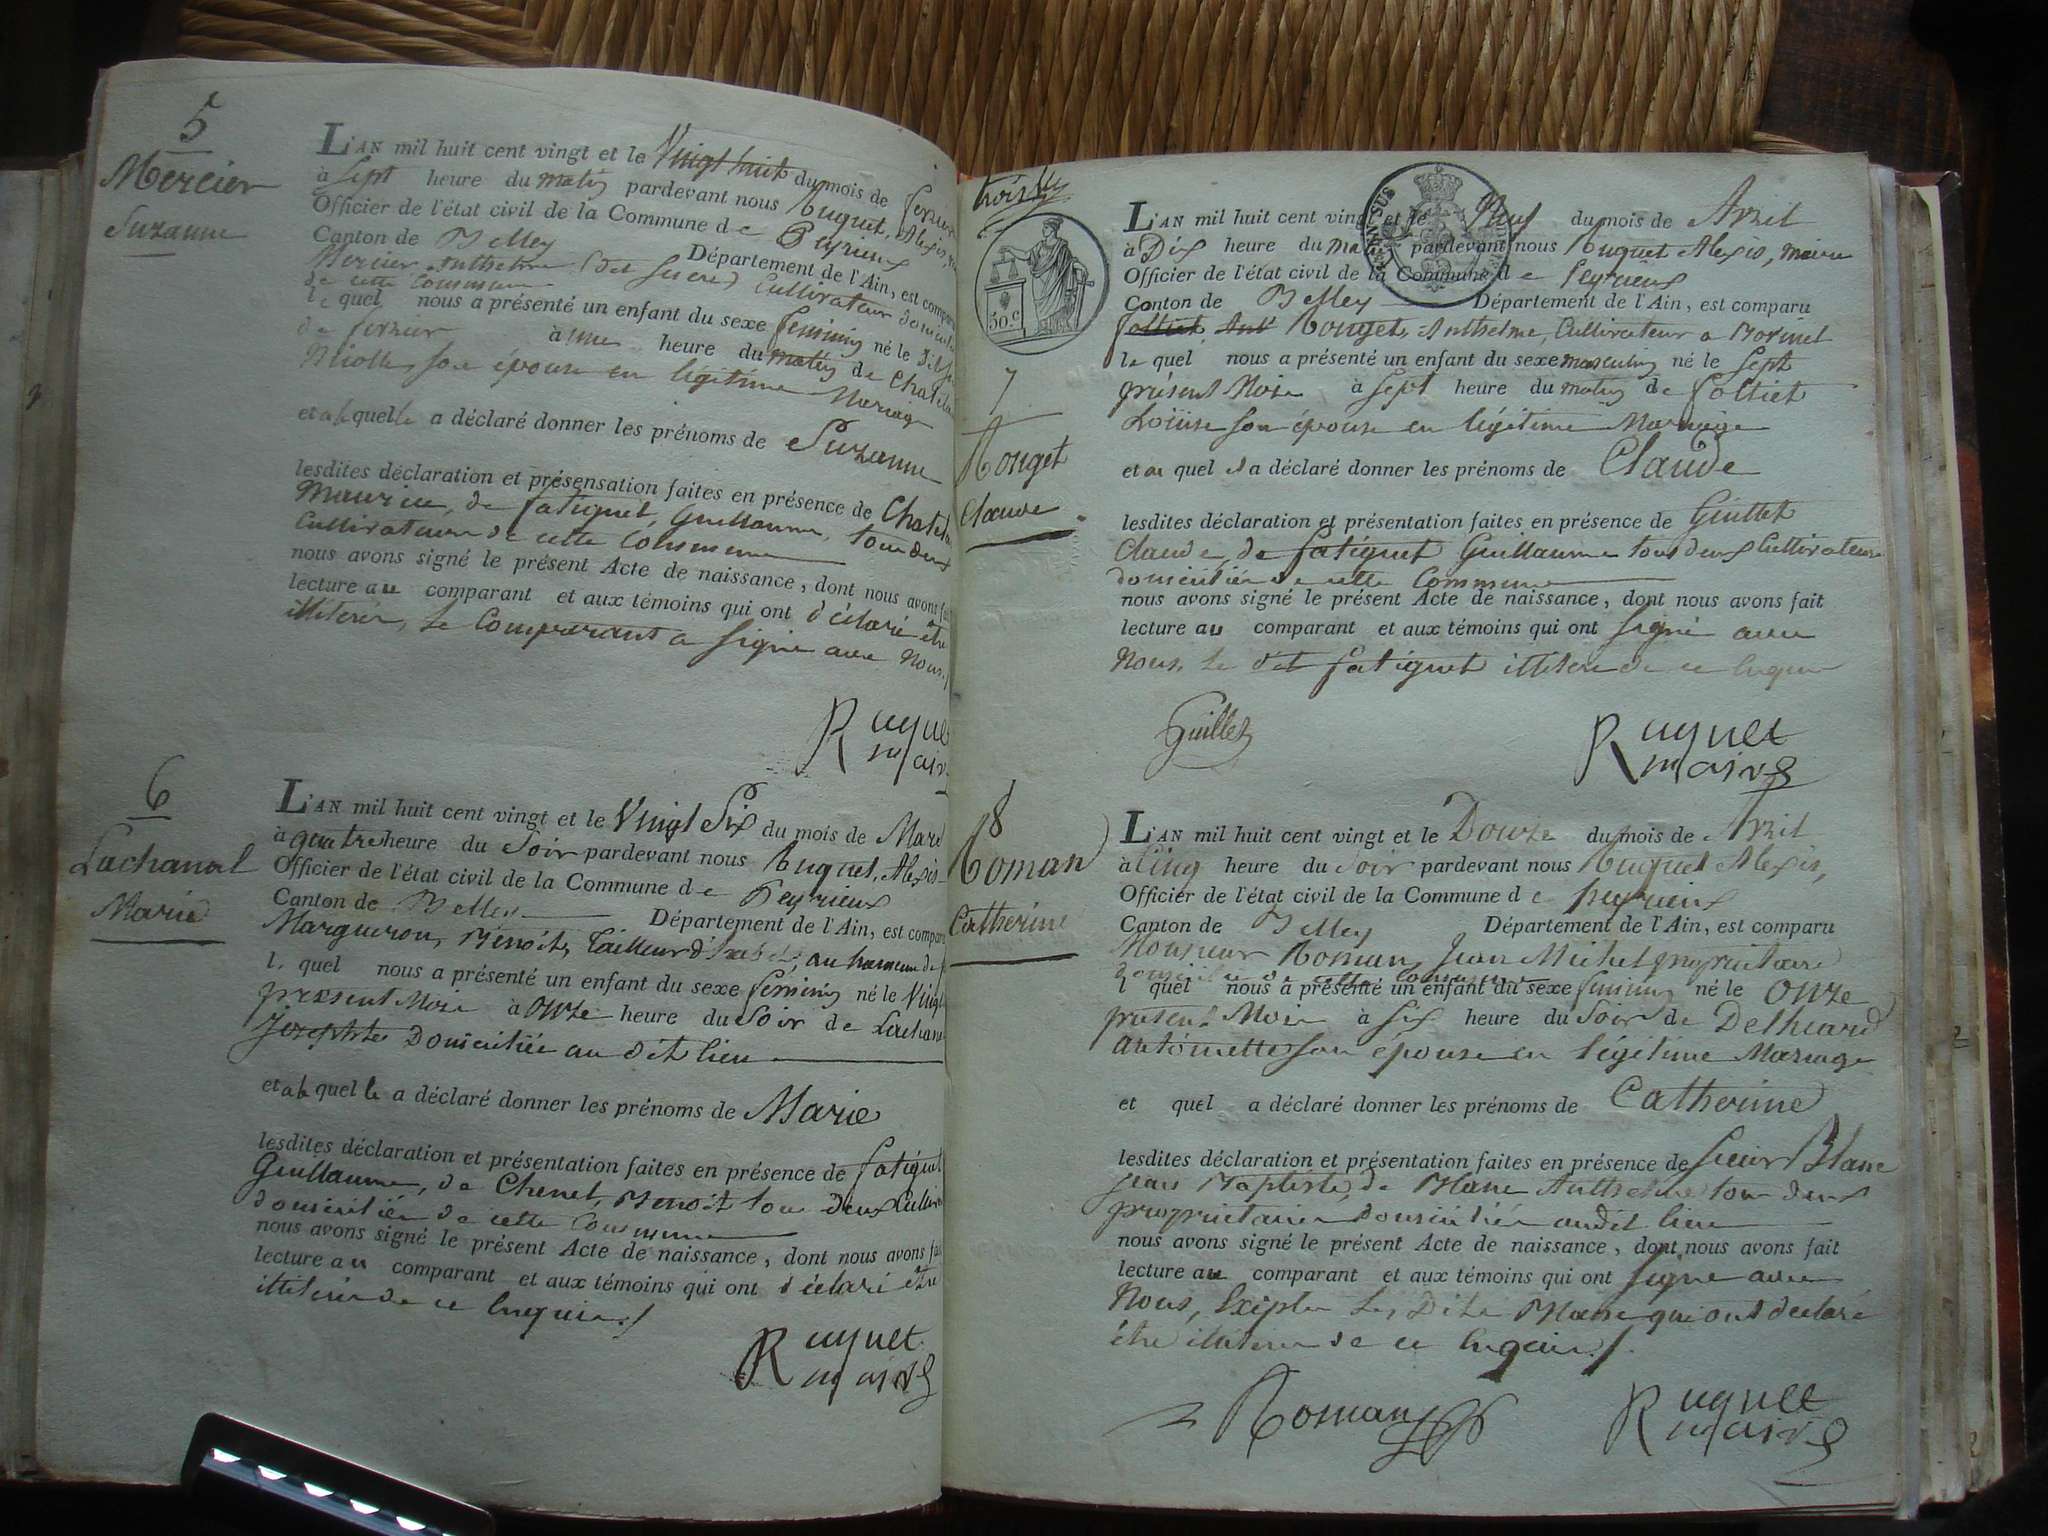 5
Mercier
Suzanne
L'AN mil huit cent vingt et le Vingt huit du mois de fevrier
à Sept heure du matin pardevant nous Ruguet, Alexis
Officier de l'état civil de la Commune de Peyrieux
Canton de Belley Département de l'Ain, est comparu
Mercier Anthelme Cultivateur
de cette Commune
le quel nous a présenté un enfant du sexe feminin né le
de fevrier à une heure du matin de
son épouse en légitime Mariage
et a la quelle a déclaré donner les prénoms de Suzanne
lesdites déclaration et présensation faites en présence de
Maurice, de fatiguet, Guillaume, tous deux
Cultivateurs de cette Commune
nous avons signé le présent Acte de naissance, dont nous avons fait
lecture au comparant et aux témoins qui ont déclaré être
illiterés, le Comparant a signé avec Nous
Ruguet
maire
6
Lachanal
Marie
L'AN mil huit cent vingt et le Vingt Six du mois de Mars
à quatre heure du Soir pardevant nous Ruguet, Alexis
Officier de l'état civil de la Commune de Peyrieux
Canton de Belley Département de l'Ain, est comparu
Margueron, Benoit, Tailleur d'habits, au hameau de
l. quel nous a présenté un enfant du sexe feminin né le Vingt
present Mois à onze heure du Soir de Lachanal
Josephte Domiciliée au dit lieu
et a la quelle a déclaré donner les prénoms de Marie
lesdites déclaration et présentation faites en présence de fatiguet
Guillaume, de Chenet, Benoit tous Deux
domiciliés de cette Commune
nous avons signé le présent Acte de naissance, dont nous avons fait
lecture au comparant et aux témoins qui ont déclaré être
illiterés de ce Enquis./
Ruguet
maire
50.c
7
Rouget
Claude
L'AN mil huit cent vingt et le Neuf du mois de Avril
à Dix heure du pardevant nous Ruguet Alexis, maire
Officier de l'état civil de la Commune de Peyrieux
Canton de Belley Département de l'Ain, est comparu
Rouget, Anthelme, Cultivateur a
le quel nous a présenté un enfant du sexe masculin né le Sept
présent Mois à Sept heure du matin de foltiet
Loüise son épouse en légitime Mariage
et au quel il a déclaré donner les prénoms de Claude
lesdites déclaration et présentation faites en présence de Guillet
Claude, de fatiguet Guillaume tous deux Cultivateurs
domiciliés de cette Commune
nous avons signé le présent Acte de naissance, dont nous avons fait
lecture au comparant et aux témoins qui ont signé avec
Nous, le dit fatiguet illiteré de ce Enquis
Guillet
Ruguet
maire
8
Roman
Catherine
L'AN mil huit cent vingt et le Douze du mois de Avril
à Cinq heure du Soir pardevant nous Ruguet Alexis,
Officier de l'état civil de la Commune de Peyrieux
Canton de Belley Département de l'Ain, est comparu
Monsieur Roman, Jean Michel proprietaire
domicilié de cette commune
l quel nous a présenté un enfant du sexe feminin né le onze
présent Mois à six heure du Soir de
Antoinette son épouse en légitime Mariage
et quel a déclaré donner les prénoms de Catherine
lesdites déclaration et présentation faites en présence de Sieur Blanc
Jean Baptiste, de Blanc Anthelme tous deux
proprietaires domiciliés audit lieu
nous avons signé le présent Acte de naissance, dont nous avons fait
lecture au comparant et aux témoins qui ont signé avec
Nous, Excepter Les Dits Blanc qui ont déclaré
être illiteré de ce Enquis./.
Roman
Ruguet
maire